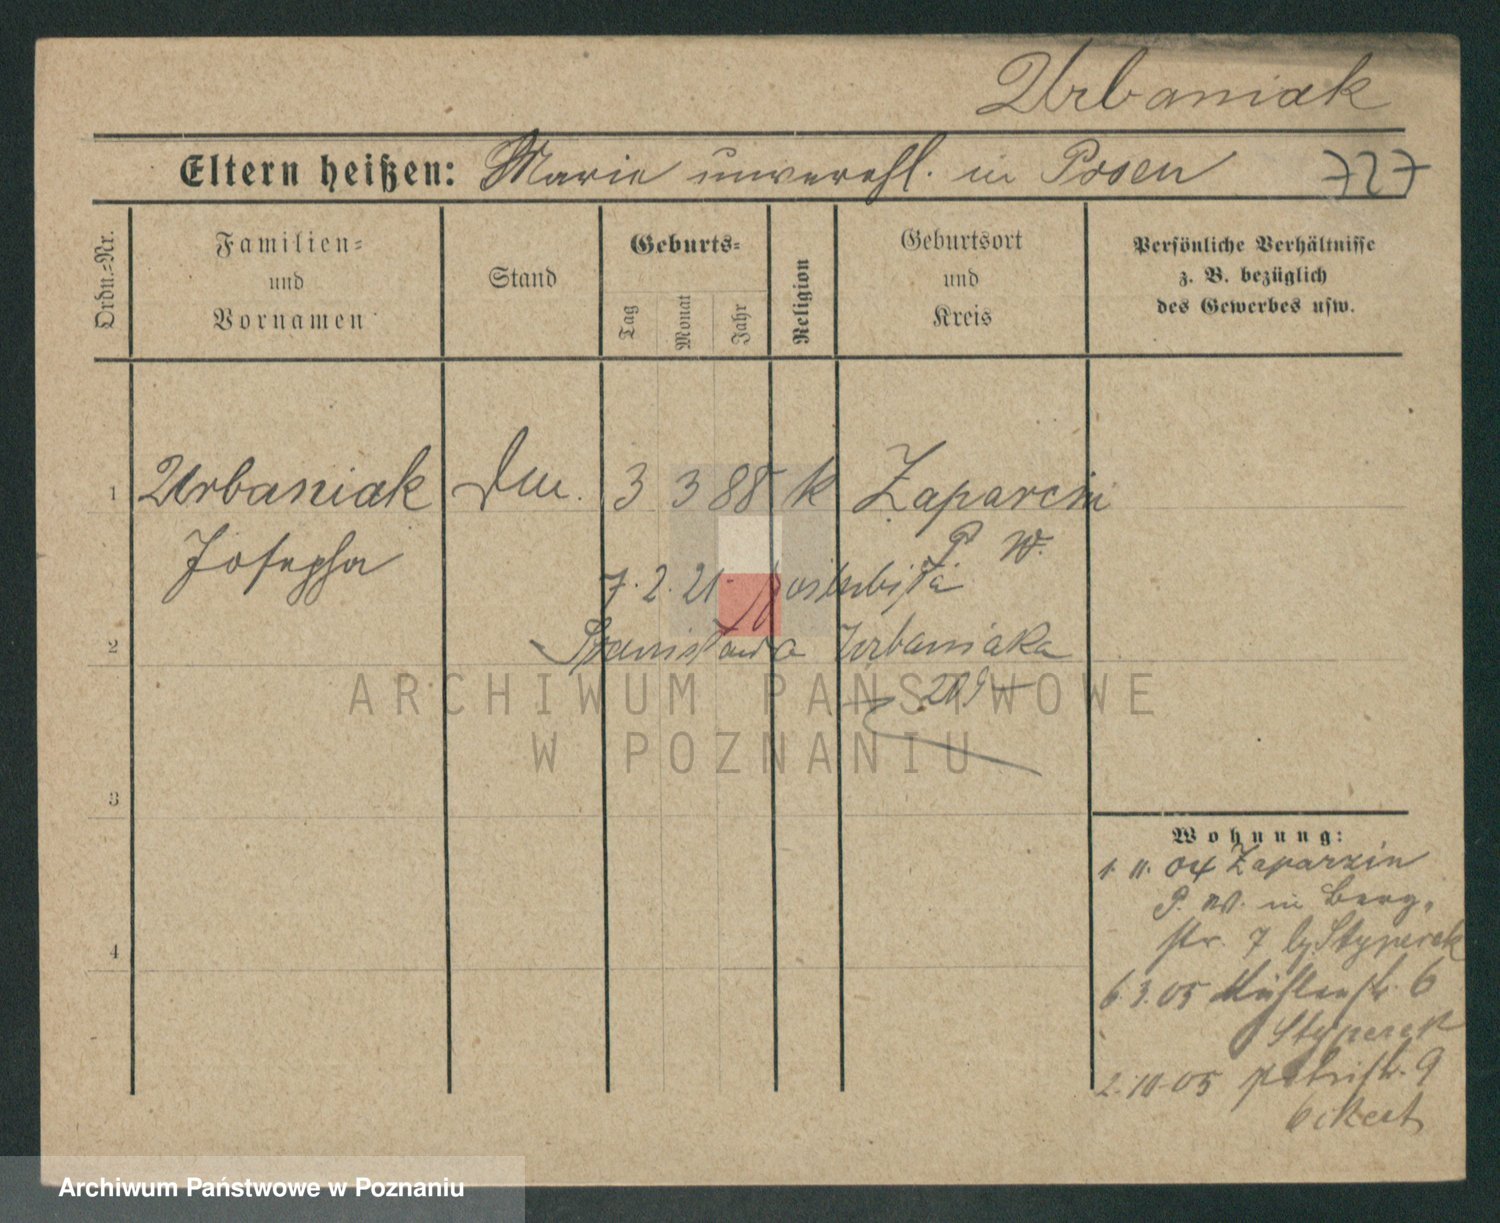 Urbaniak
Eltern heißen: Marie unverehl. in Posen 727
Ordn.-Nr.
Familien-
und
Vornamen
Stand
Geburts-
Tag
Monat
Jahr
Religion
Geburtsort
und
Kreis
Persönliche Verhältnisse
z. B. bezüglich
des Gewerbes usw.
1 Urbaniak 3 3 88 k Zaparcin
Josepha P. W.
7.2.21. poślubiła
2 Stanisława Urbaniaka
ARCHIWUM PAŃSTWOWE
W POZNANIU
3
Wohnung:
1. 11. 04 Zaparzin
P. W. in Berg-
str. 7 Styperek
4
6.3.05 Mühlenstr. 6
Styperek
2.10.05 Petristr. 9
Eckert
Archiwum Państwowe w Poznaniu